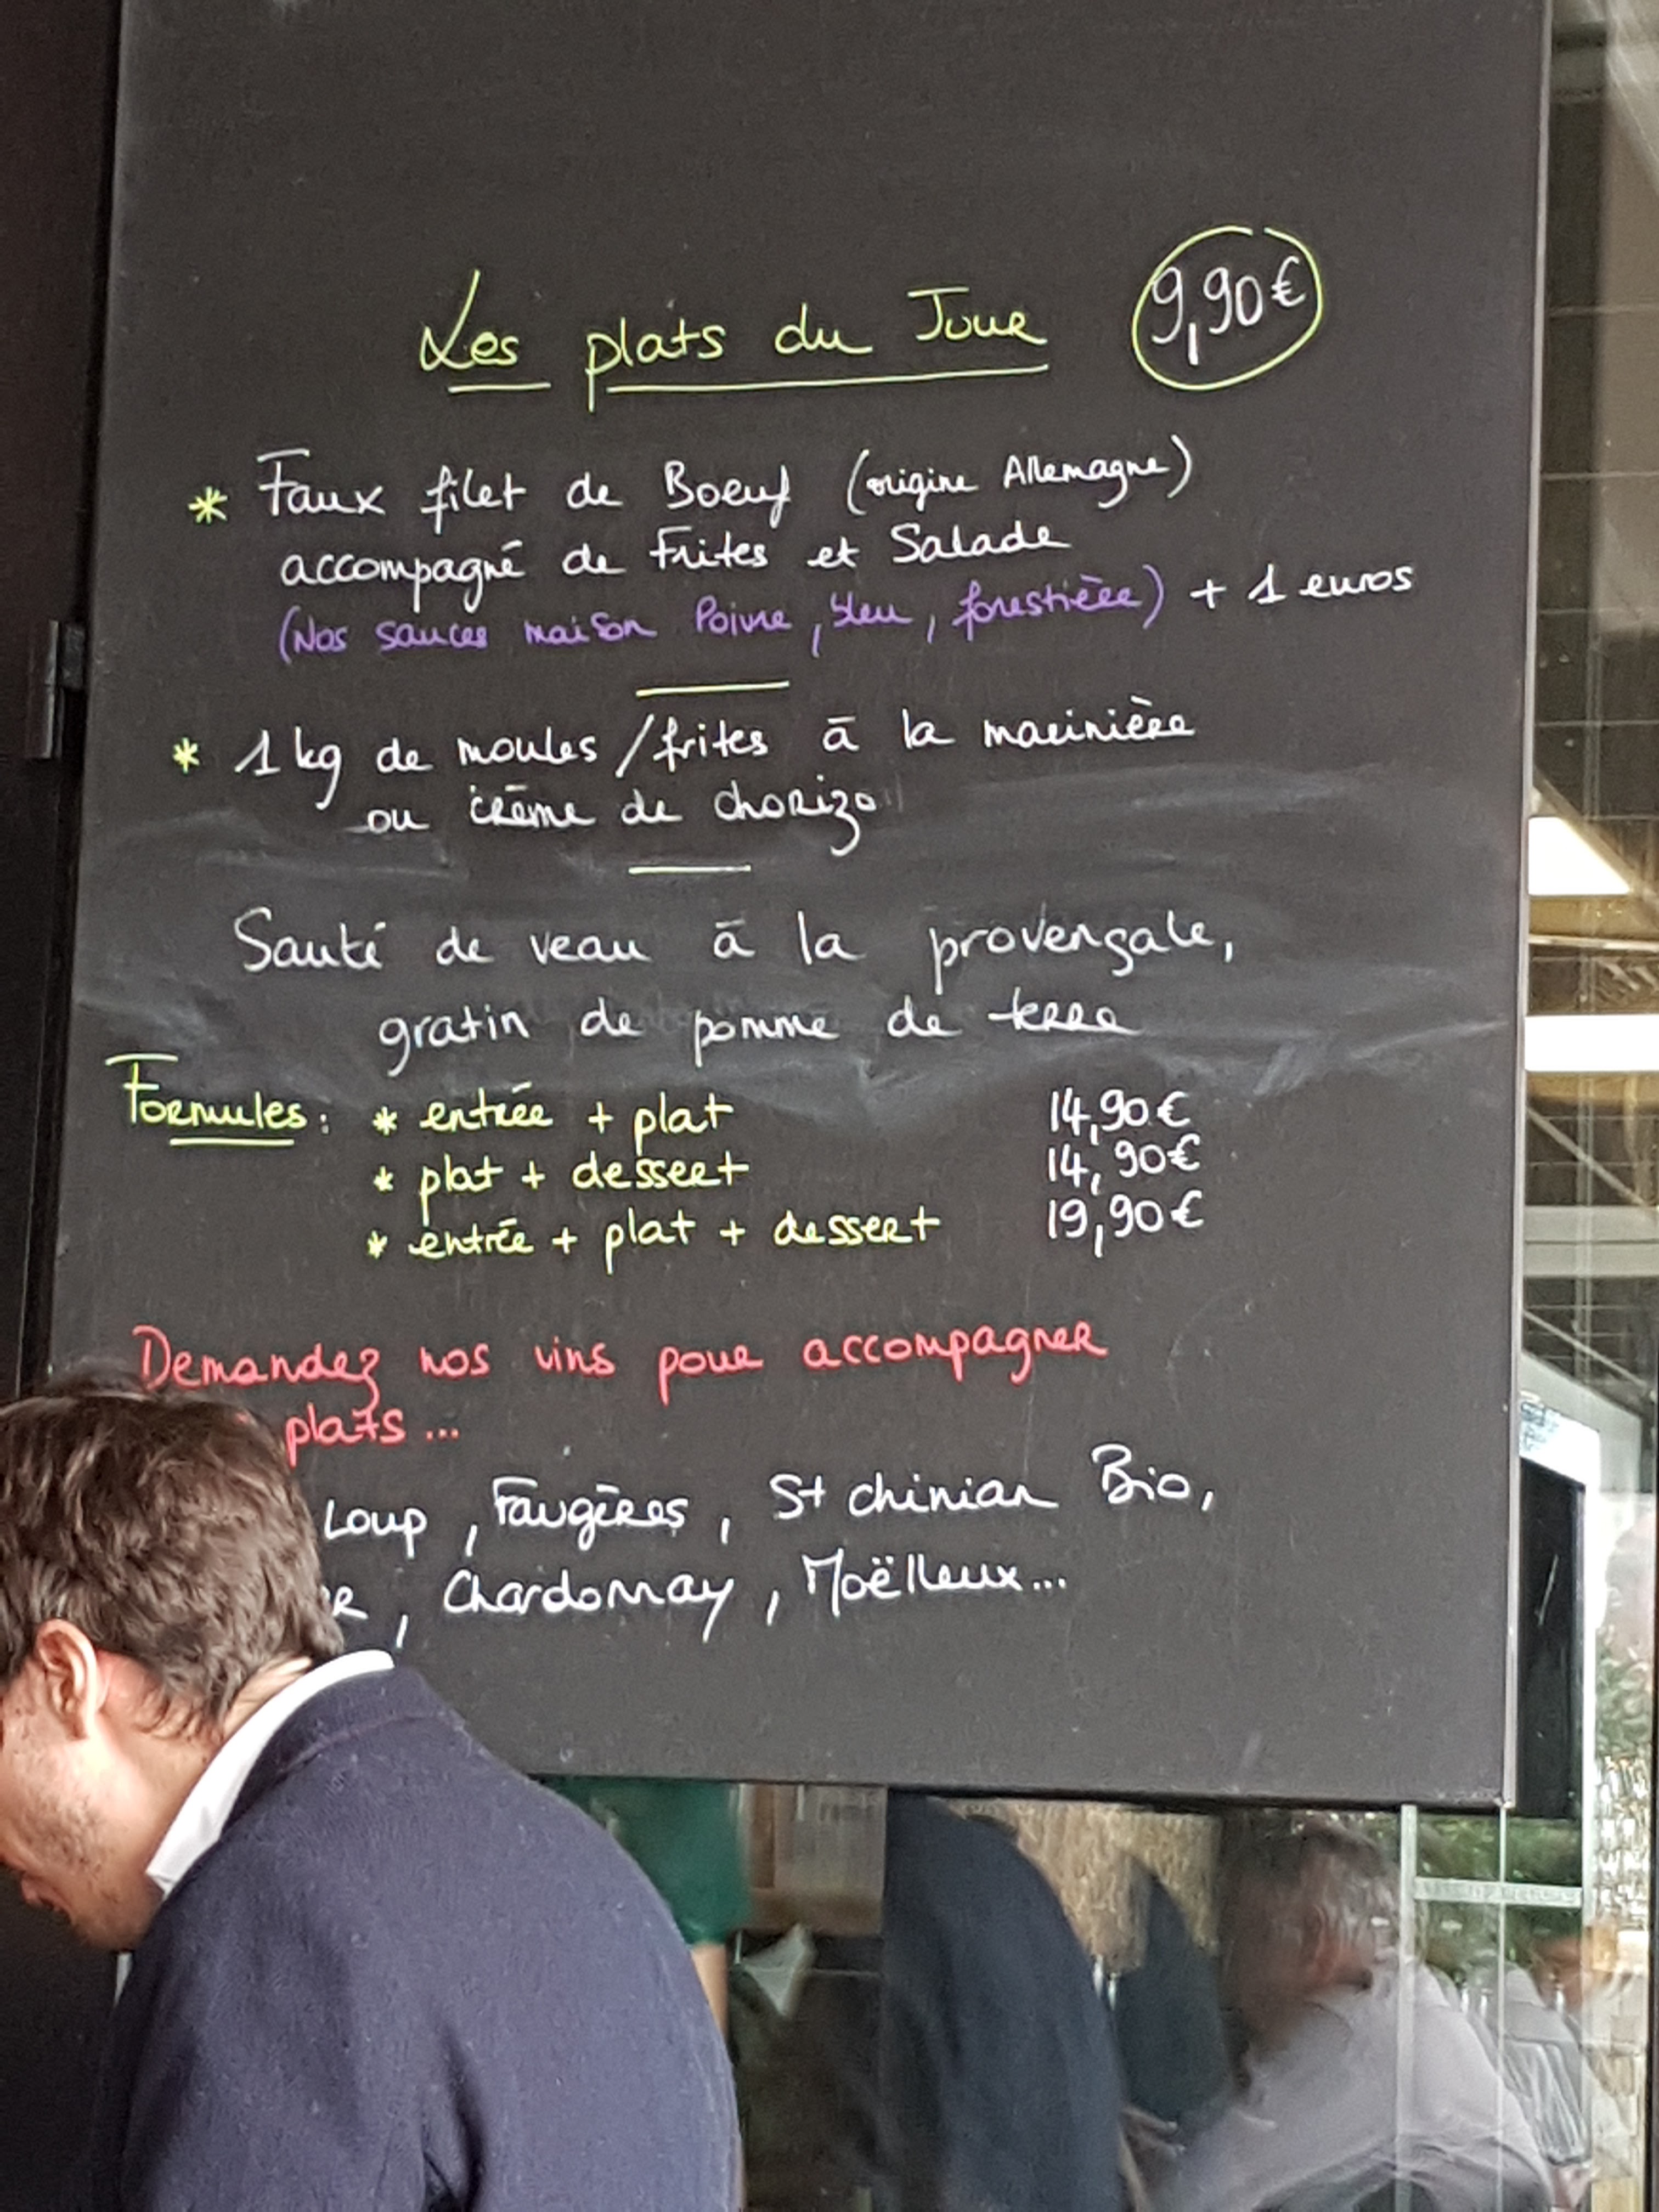 Les plats du Jour 9,90€
* Faux filet de Boeuf (origine Allemagne)
accompagné de Frites et Salade
(Nos sauces maison Poivre, bleu, forestière) + 1 euros
* 1kg de moules/frites à la marinière
ou crème de chorizo
Sauté de veau à la provençale,
gratin de pomme de terre
Formules: * entrée + plat 14,90€
* plat + dessert 14,90€
* entrée + plat + dessert 19,90€
Demandez nos vins pour accompagner
plats...
Loup, Faugères, St chinian Bio,
, Chardonnay, Moëlleux...